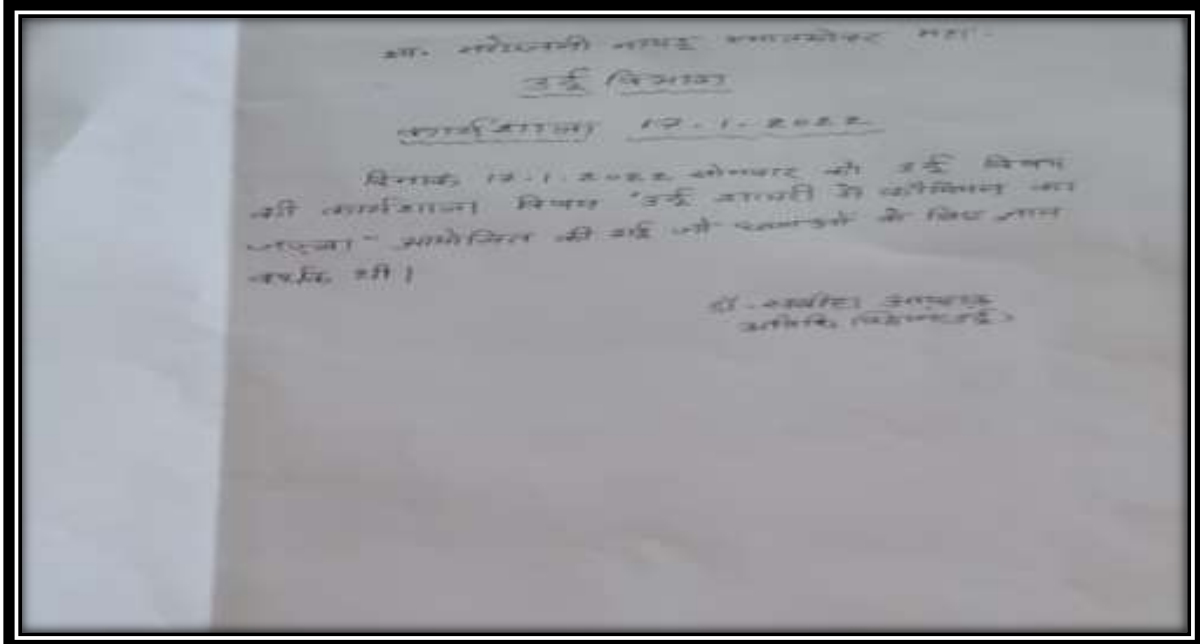 शा. सरोजनी नायडू स्नातकोत्तर महा.
उर्दू विभाग
कार्यशाला 17.1.2022
दिनांक 17.1.2022 सोमवार को उर्दू विषय
की कार्यशाला विषय "उर्दू शायरी में का
" आयोजित की गई जो के लिए ज्ञान
वर्धक थी।
डॉ.
अतिथि उर्दू